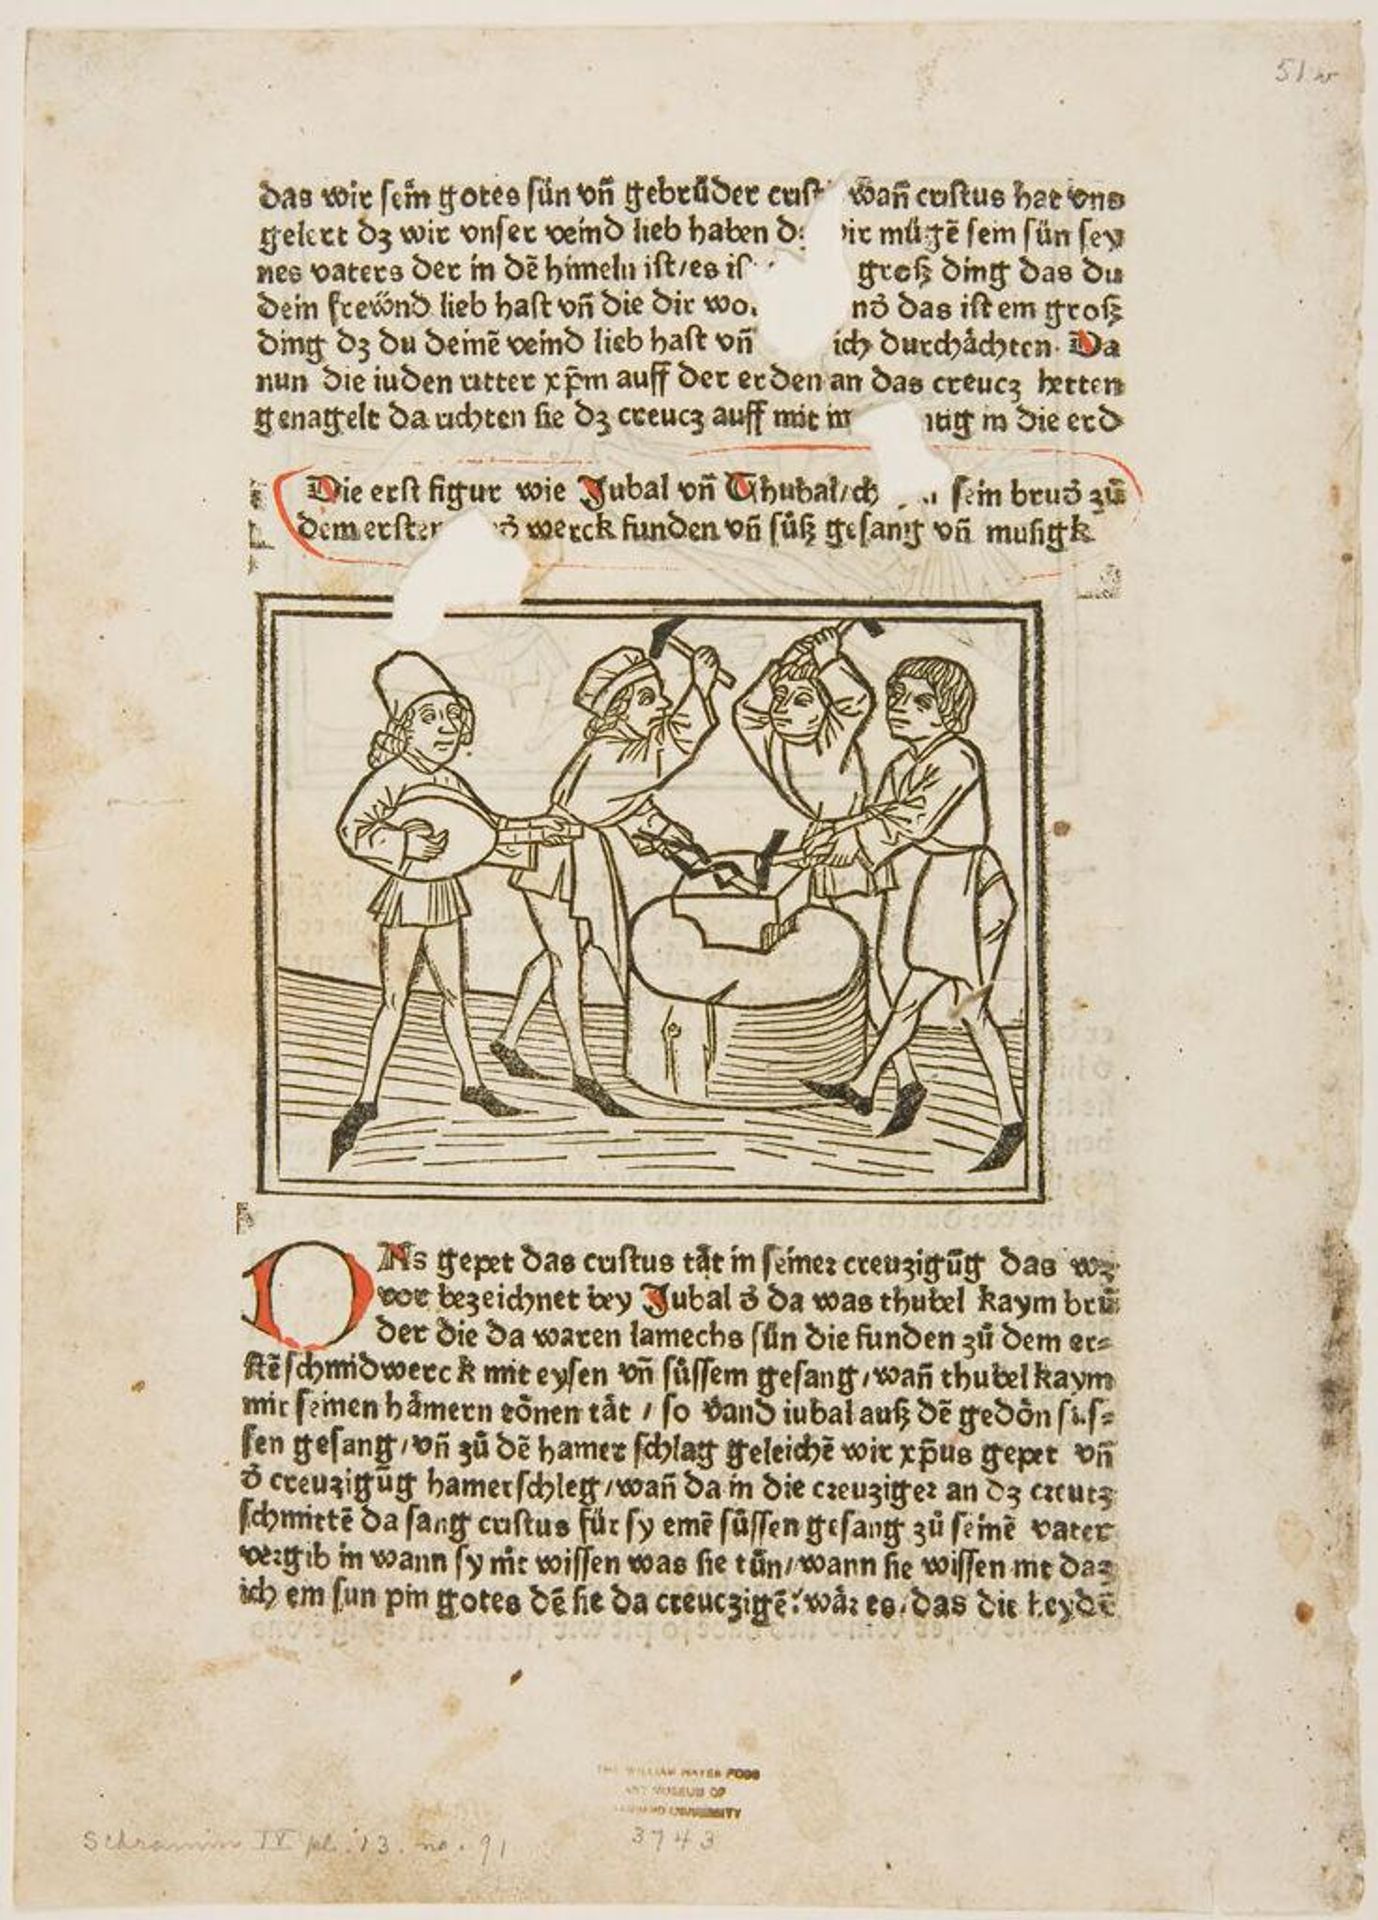 51 v
das wir sein gotes sün vñ gebrüder crist wañ cristus hat vns
gelert dʒ wir vnser veind lieb haben wir mügē sein sün sey
nes vaters der in dē himeln ist/es groß ding das du
dein frewnd lieb hast vñ die dir das ist ein groß
ding dʒ du deinē veind lieb hast vñ durchächten. Da
nun die iuden ritter xp̄m auff der erden an das creucʒ hetten
genagelt da richten sie dʒ creucʒ auff mit in die erd
Die erst figur wie Jubal vñ Thubal sein brud̕ zů
dem ersten werck funden vñ süß gesang vñ musigk
DAs gepet das cristus tät in seiner creuzigūg das wʒ
vor bezeichnet bey Jubal d̕ da was thubel kaym brů
der die da waren lamechs sün die funden zů dem er⸗
stē schmidwerck mit eysen vñ süssem gesang/wañ thubel kaym
mit seinen hämern tönen tät / so vand iubal auß dē gedön süs⸗
sen gesang/vñ zů dē hamer schlag geleichē wir xp̄us gepet vñ
d̕ creuzigūg hamerschleg/wañ da in die creuziger an dʒ creutz
schmittē da sang cristus für sy einē süssen gesang zů seinē vater
vergib in wann sy nit wissen was sie tůn/wann sie wissen nit daz
ich ein sun pin gotes dē sie da creuczigē. wär es, das die heydē
THE WILLIAM HAYES FOGG
ART MUSEUM OF
HARVARD UNIVERSITY
3743
Schramm IV pl. 13. no. 91